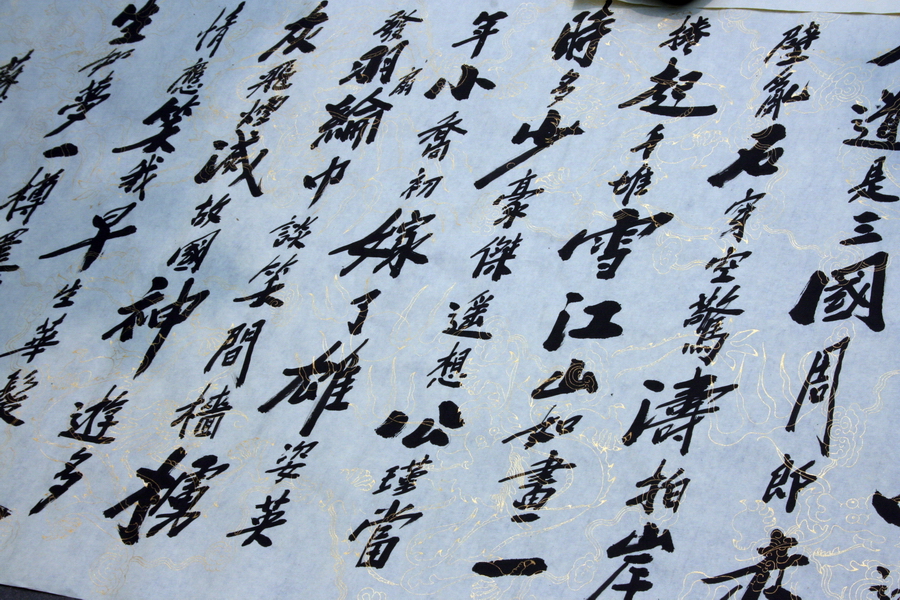 道是三國周郎赤
壁亂石穿空驚濤拍岸
捲起千堆雪江山如畫一
時多少豪傑遙想公瑾當
年小喬初嫁了雄姿英
發羽扇綸巾談笑間檣櫓
灰飛煙滅故國神遊多
情應笑我早生華髮
生如夢一樽